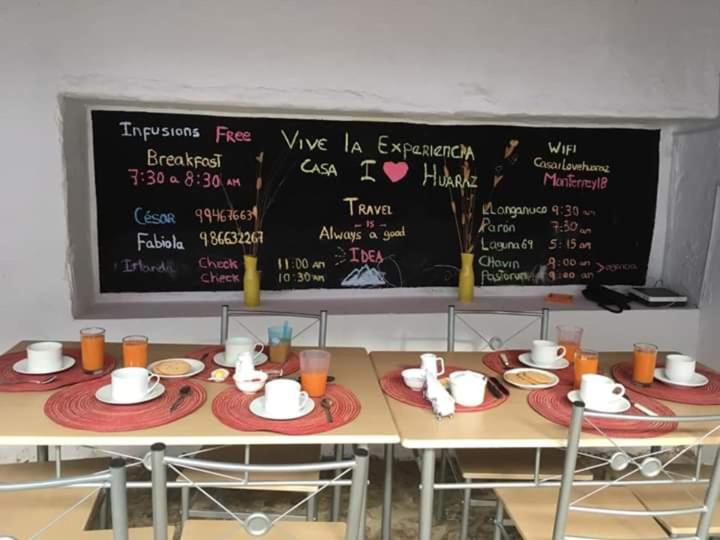 Infusions Free
Breakfast
7:30 a 8:30 AM
César
Fabiola 986632267
Irlanda Check 11:00 am
Check 10:30 am
Vive la Experiencia
Casa I ❤ Huaraz
Travel
is
Always a good
IDEA
WIFI
Casailovehuaraz
Monterrey18
Llanganuco 9:30 am
Parón 7:30 am
Laguna 69 5:15 am
Chavin 9:00 am > agencia
Pastoruri 9:00 am